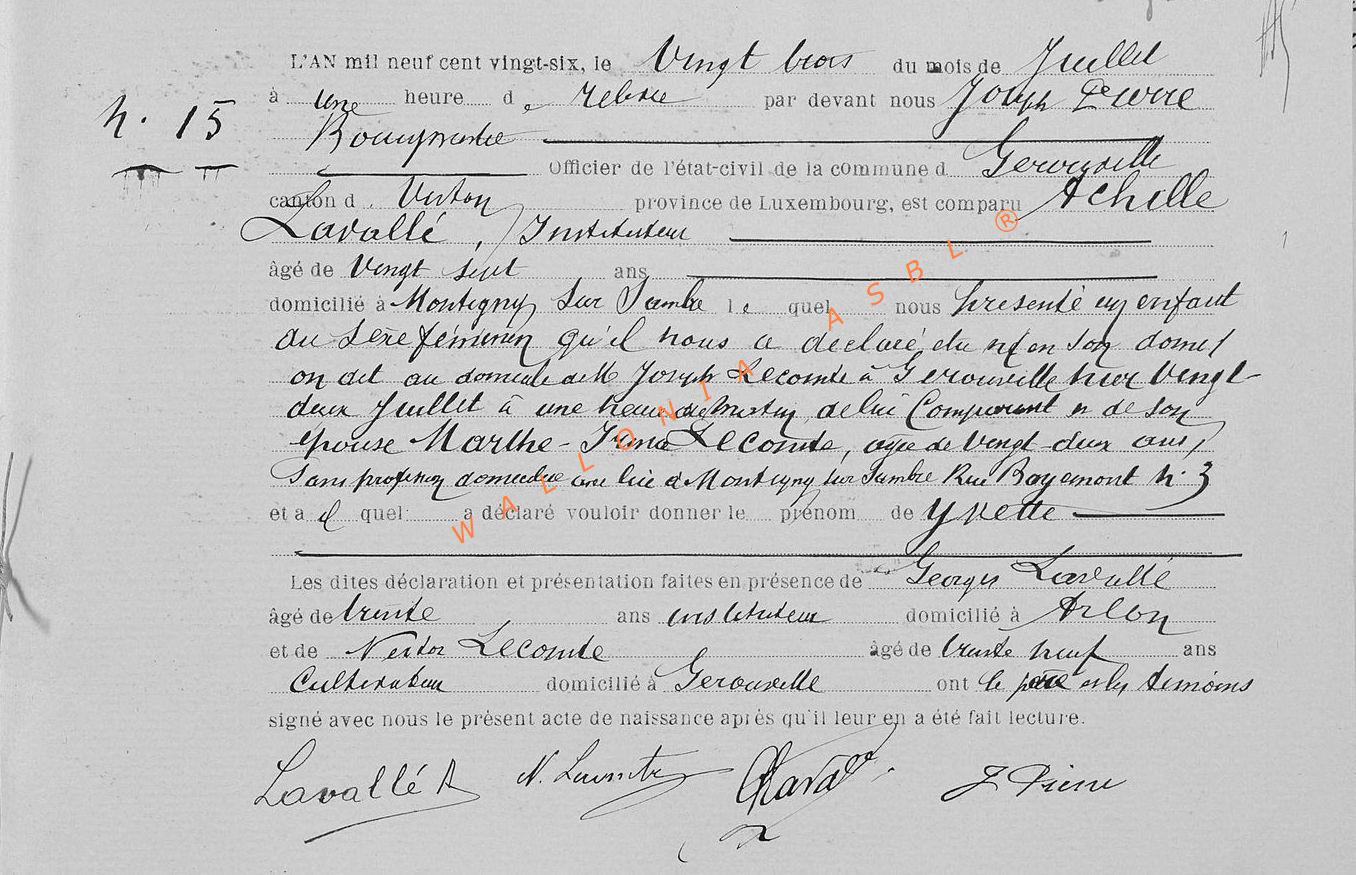 L'AN mil neuf cent vingt-six, le Vingt trois du mois de Juillet
n. 15
à une heure d e relevée par devant nous Joseph Pierre
Bourgmestre
Officier de l'état-civil de la commune d Gerouville
canton d Virton province de Luxembourg, est comparu Achille
Lavallé, Instituteur
âgé de Vingt sept ans
domicilié à Montigny sur Sambre l e quel nous présenté un enfant
du sexe féminin qu'il nous a déclaré être né en son domi
on dit au domicile de M Joseph Lecomte à Gerouville hier Vingt-
deux Juillet à une heure du matin, de lui Comparant et de son
épouse Marthe-Irma Lecomte, agée de Vingt-deux ans,
Sans profession domiciliée avec lui à Montigny sur Sambre Rue Bayemont n. 3
et a il quel a déclaré vouloir donner le prénom de Yvette
Les dites déclaration et présentation faites en présence de Georges Lavallé
âgé de trente ans instituteur domicilié à Arlon
et de Nestor Lecomte âgé de trente neuf ans
Cultivateur domicilié à Gerouville ont le père et les témoins
signé avec nous le présent acte de naissance après qu'il leur en a été fait lecture.
Lavallé A N. Lecomte J Pierre
WALLONIA ASBL ®